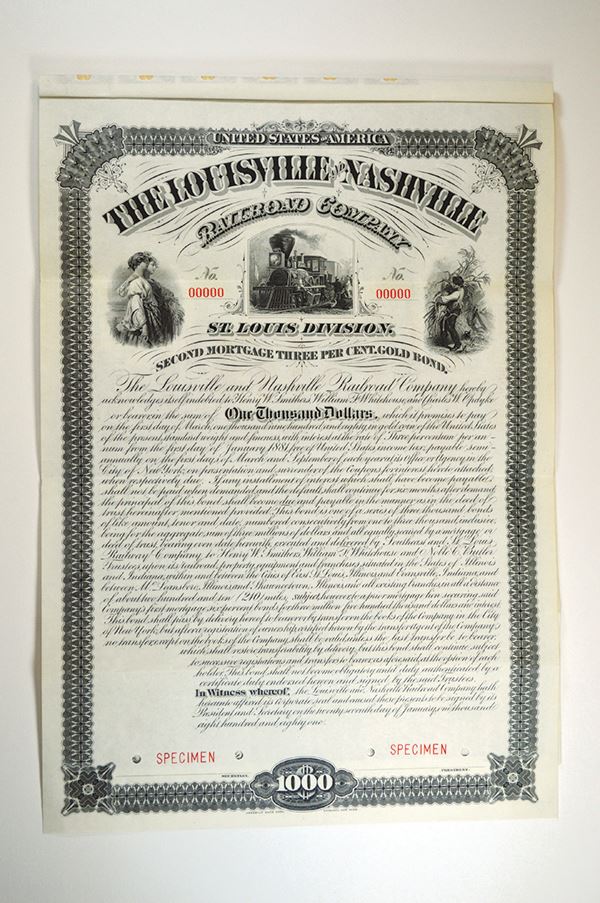 UNITED STATES OF AMERICA
THE LOUISVILLE AND NASHVILLE
RAILROAD COMPANY
No. No.
00000 00000
ST. LOUIS DIVISION.
SECOND MORTGAGE THREE PER CENT. GOLD BOND.
The Louisville and Nashville Railroad Company hereby
acknowledges itself indebted to Henry W. Smithers, William F. Whitehouse, and Charles W. Opdyke
or bearer, in the sum of One Thousand Dollars, which it promises to pay
on the first day of March, one thousand nine hundred and eighty, in gold coin of the United States
of the present standard weight and fineness, with interest at the rate of Three per centum per an-
num from the first day of January 1881, free of United States income tax, payable semi-
annually on the first days of March and September of each year, at its Office or Agency in the
City of New York, on presentation and surrender of the Coupons for interest hereto attached,
when respectively due. If any installment of interest which shall have become payable,
shall not be paid when demanded, and the default shall continue for six months after demand
the principal of this bond shall become due and payable in the manner as in the deed of
trust hereinafter mentioned provided. This bond is one of a series of three thousand bonds
of like amount, tenor and date, numbered consecutively from one to three thousand, inclusive,
being for the aggregate sum of three millions of dollars and all equally secured by a mortgage or
deed of trust, bearing even date herewith, executed and delivered by Southeast and St. Louis
Railway Company, to Henry W. Smithers, William F. Whitehouse and Noble C. Butler
Trustees upon its railroad, property, equipment and franchises, situated in the States of Illinois
and Indiana, within and between the Cities of East St. Louis, Illinois and Evansville, Indiana, and
between Mc.Leansboro, Illinois and Shawneetown, Illinois
of about two hundred and ten (210) miles, subject, however, to a prior mortgage lien securing said
Company's first mortgage six per cent bonds for three million five hundred thousand dollars and interest
This bond shall pass by delivery hereof to bearer or by transfer on the books of the Company in the City
of New York; but after a registration of ownership certified hereon by the transfer Agent of the Company,
no transfer except on the books of the Company, shall be valid, unless the last transfer be to bearer,
which shall restore transferability by delivery, but this bond shall continue subject
to successive registrations and transfers to bearer as aforesaid, at the option of each
holder. This bond shall not become obligatory until duly authenticated by a
certificate duly endorsed hereon and signed by the said Trustees.
In Witness whereof, the Louisville and Nashville Railroad Company hath
hereunto affixed its corporate seal and caused these presents to be signed by its
President and Secretary on the twenty seventh day of January, one thousand
eight hundred and eighty one.
SPECIMEN SPECIMEN
SECRETARY. PRESIDENT.
1000